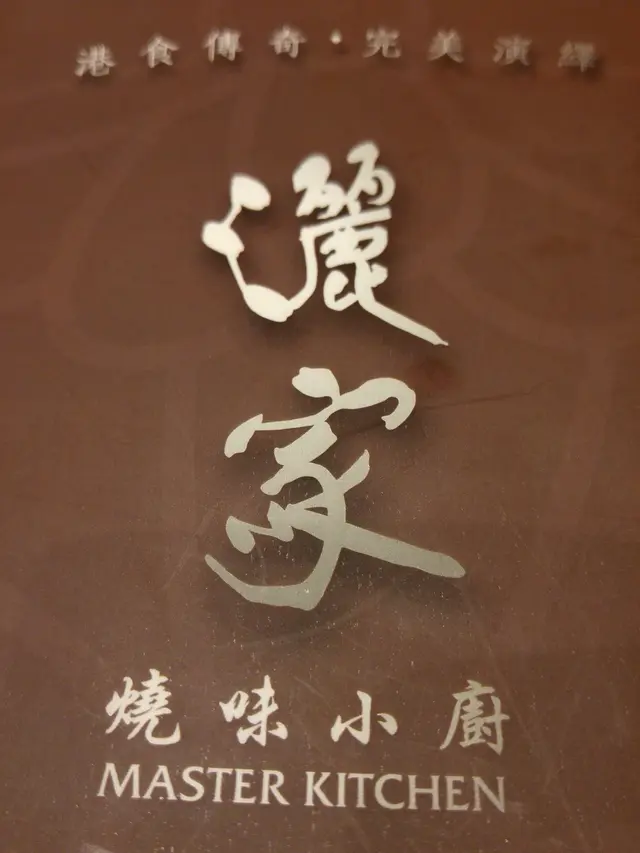 港食傳奇・完美演繹
灑
家
燒味小廚
MASTER KITCHEN